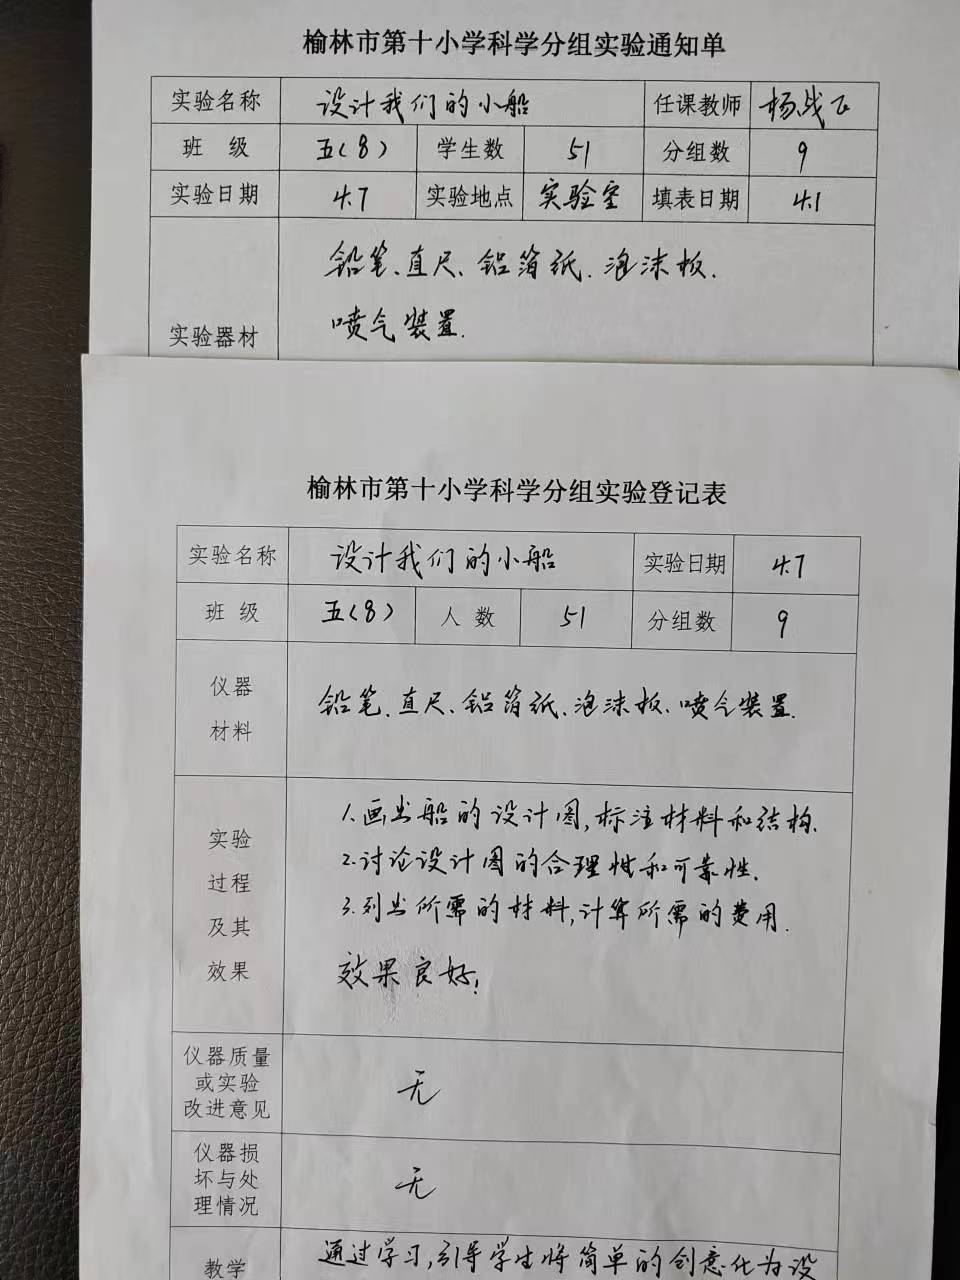 榆林市第十小学科学分组实验通知单
实验名称 设计我们的小船 任课教师 杨战飞
班 级 五(8) 学生数 51 分组数 9
实验日期 4.7 实验地点 实验室 填表日期 4.1
铅笔、直尺、铝箔纸、泡沫板、
喷气装置.
实验器材
榆林市第十小学科学分组实验登记表
实验名称 设计我们的小船 实验日期 4.7
班 级 五(8) 人 数 51 分组数 9
仪器
材料
铅笔、直尺、铝箔纸、泡沫板、喷气装置.
实验
过程
及其
效果
1.画出船的设计图,标注材料和结构.
2.讨论设计图的合理性和可靠性.
3.列出所需的材料,计算所需的费用.
效果良好!
仪器质量
或实验
改进意见
无
仪器损
坏与处
理情况
无
教学
通过学习,引导学生将简单的创意化为设